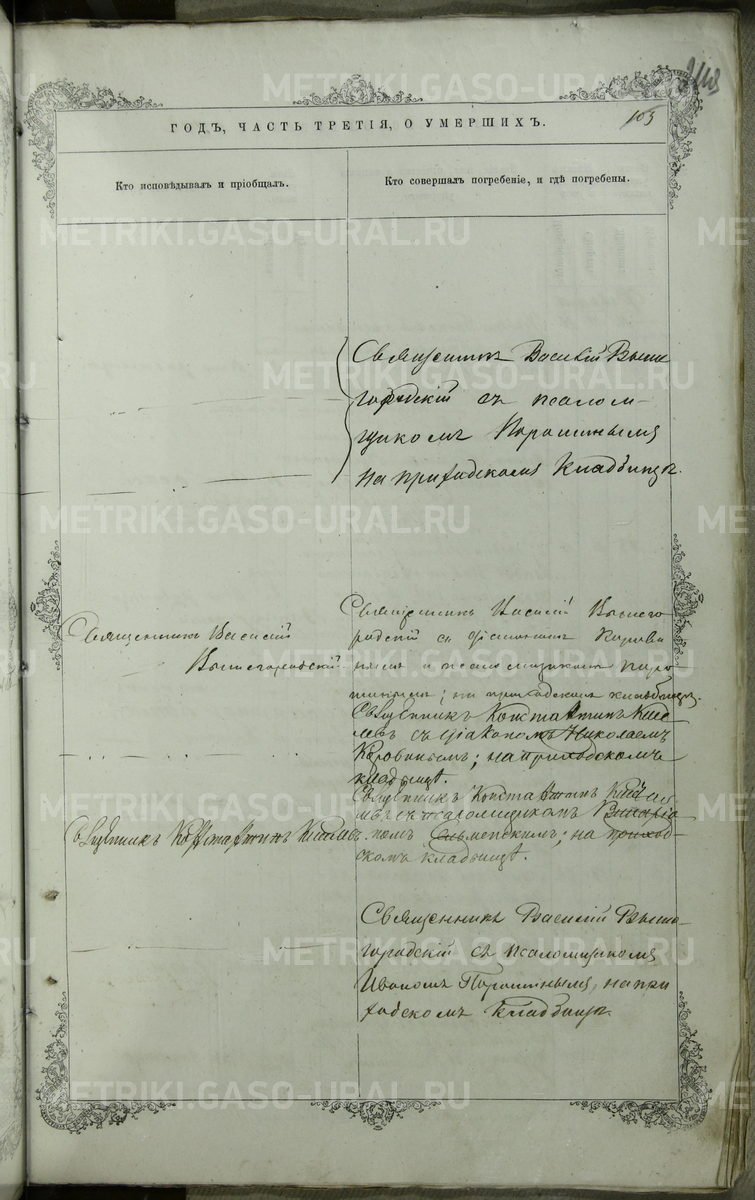 103
ГОДЪ, ЧАСТЬ ТРЕТІЯ, О УМЕРШИХЪ.
Кто исповѣдывалъ и пріобщалъ.
Кто совершалъ погребеніе, и гдѣ погребены.
Священникъ Василій Выше
городскій съ псалом-
щикомъ Порошинымъ
на приходскомъ кладбищѣ.
Священникъ Василій
Вышегородскій
Священникъ Василій Вышего
родскій съ діакономъ Корови
нымъ и псаломщикомъ Поро
шинымъ; на приходскомъ кладбищѣ.
Священникъ Константинъ
съ діакономъ Николаемъ
Коровинымъ; на приходскомъ
кладбищѣ.
Священникъ Константинъ
псаломщикомъ
Священникъ Константинъ
на приход-
скомъ кладбищѣ.
Священникъ Василій Выше-
городскій съ псаломщикомъ
Иваномъ Порошинымъ, на при
ходскомъ кладбищѣ.
METRIKI.GASO-URAL.RU